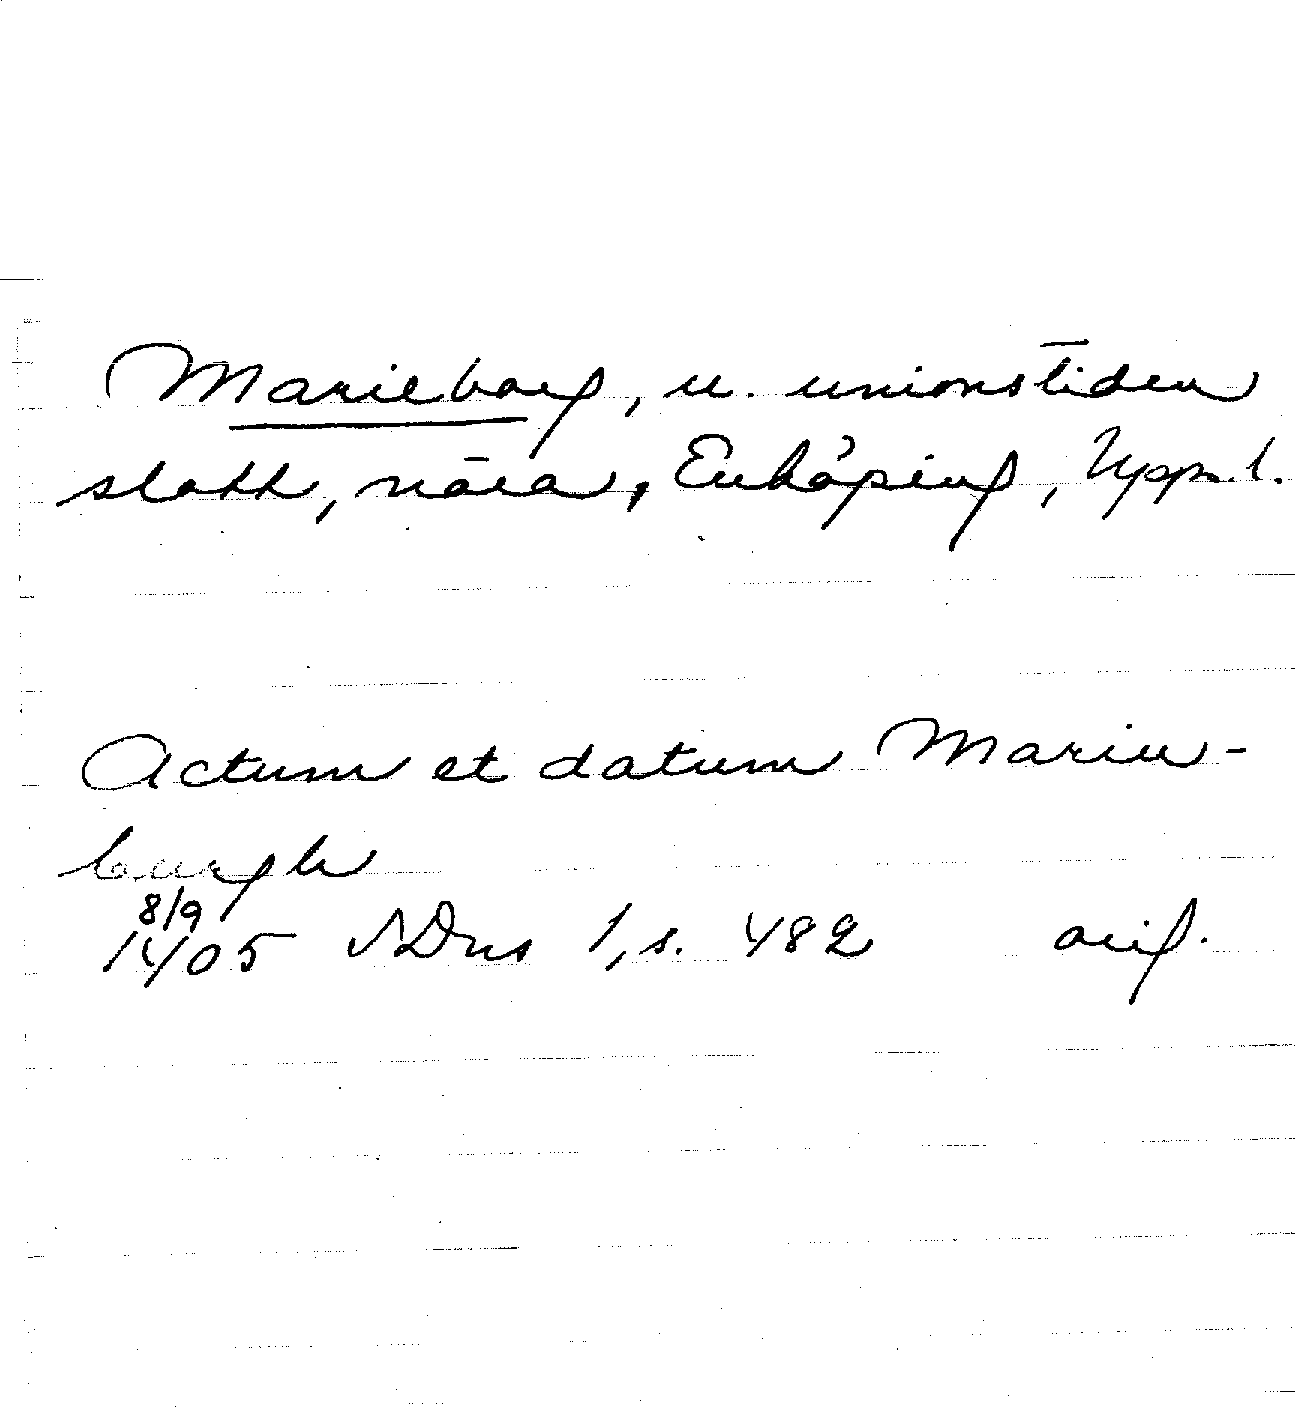 Marieborg, u. unionstiden
slott, nära, Enköping, Uppl.
Actum et datum Marien-
burgh
8/9
1405 SDns 1, s. 482 orig.